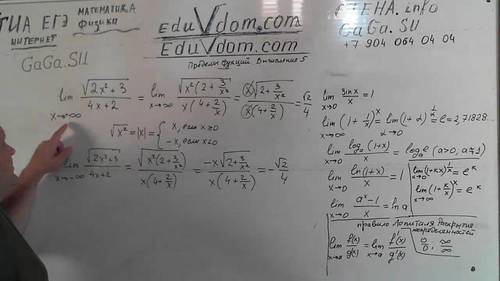 ГИА ЕГЭ МАТЕМАТИКА
физика
ИНТЕРНЕТ
GaGa.SU
EduVdom.com
EduVdom.com
Пределы функций Вычисление 5
.info
GaGa.SU
+7 904 064 04 04
lim x→∞ √(2x²+3)/(4x+2) = lim x→∞ √(x²(2+3/x²))/(x(4+2/x)) = (x)√(2+3/x²)/((x)(4+2/x)) = √2/4
√x² = |x| = { x, если x≥0
-x, если x≤0
lim x→-∞ √(2x²+3)/(4x+2) = √(x²(2+3/x²))/(x(4+2/x)) = -x√(2+3/x²)/(x(4+2/x)) = -√2/4
lim x→0 sinx/x = 1
lim x→∞ (1+1/x)^x = lim (1+α)^(1/α) = e = 2,71828..
lim x→0 log_a(1+x)/x = log_a e (a>0, a≠1)
lim x→0 ln(1+x)/x = 1
lim x→0 (1+kx)^(1/x) = e^k
lim x→∞ (1+k/x)^x = e^k
lim x→0 (a^x-1)/x = ln a
правило Лопиталя Раскрытие
неопределенностей
lim x→a f(x)/g(x) = lim x→a f'(x)/g'(x) 0/0, ∞/∞